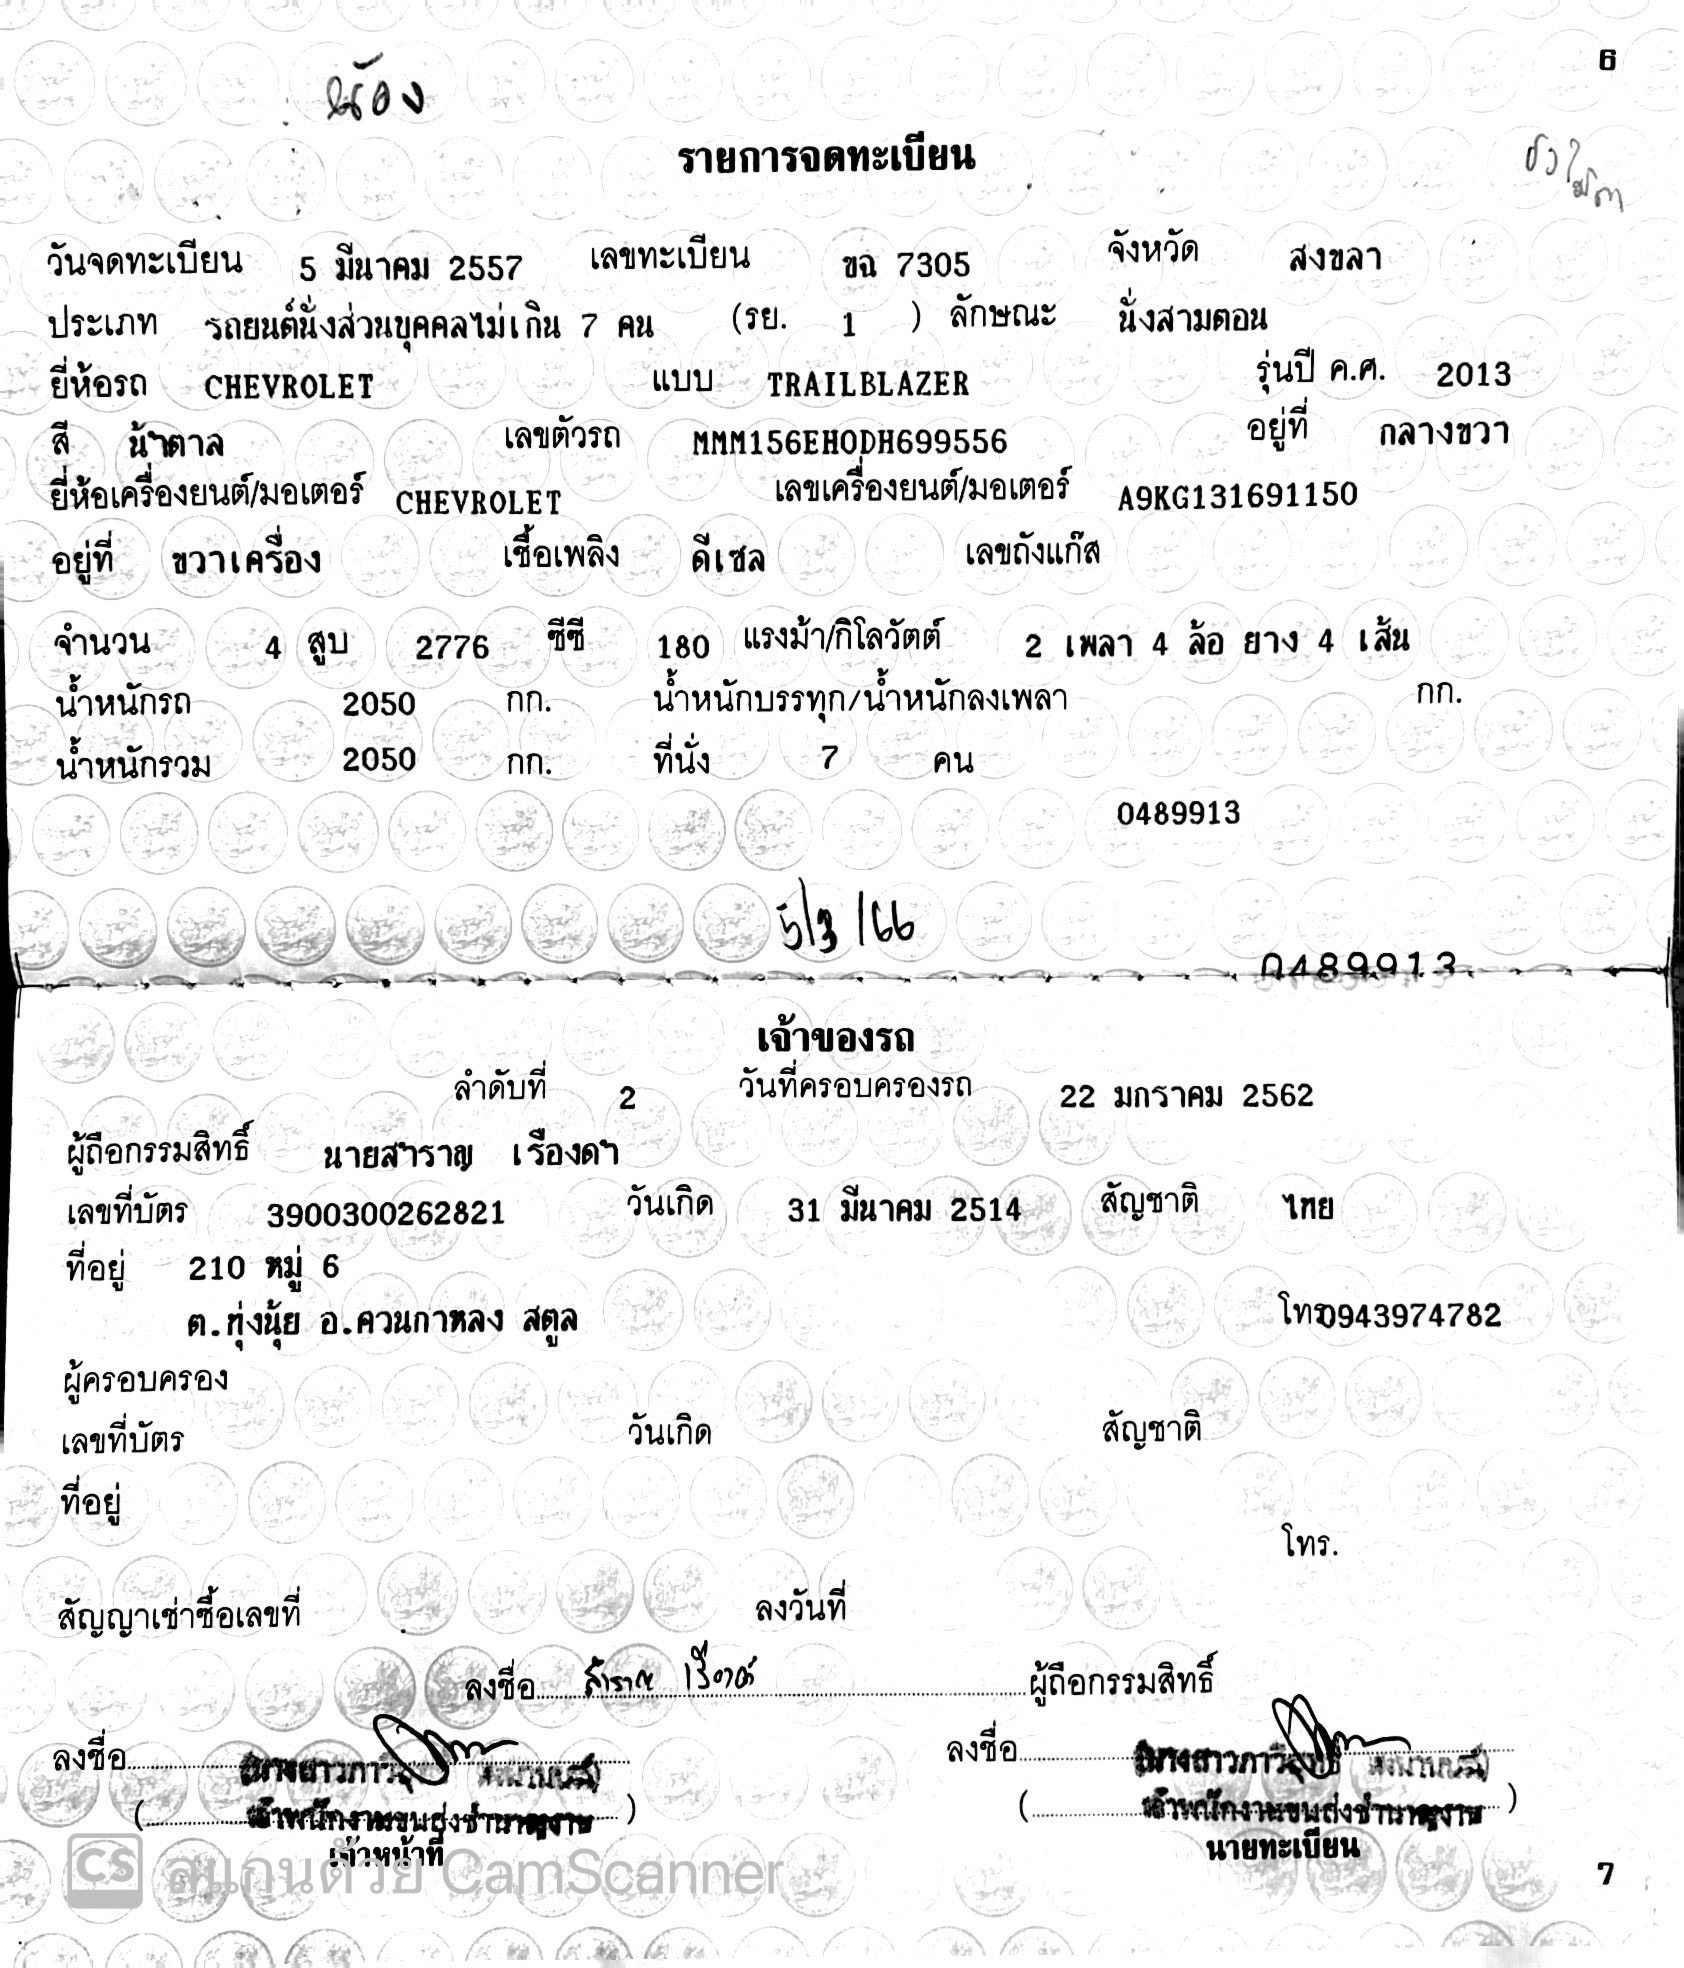 6
น้อง
รายการจดทะเบียน
วันจดทะเบียน 5 มีนาคม 2557 เลขทะเบียน ขฉ 7305 จังหวัด สงขลา
ประเภท รถยนต์นั่งส่วนบุคคลไม่เกิน 7 คน (รย. 1 ) ลักษณะ นั่งสามตอน
ยี่ห้อรถ CHEVROLET แบบ TRAILBLAZER รุ่นปี ค.ศ. 2013
สี น้ำตาล เลขตัวรถ MMM156EH0DH699556 อยู่ที่ กลางขวา
ยี่ห้อเครื่องยนต์/มอเตอร์ CHEVROLET เลขเครื่องยนต์/มอเตอร์ A9KG131691150
อยู่ที่ ขวาเครื่อง เชื้อเพลิง ดีเซล เลขถังแก๊ส
จำนวน 4 สูบ 2776 ซีซี 180 แรงม้า/กิโลวัตต์ 2 เพลา 4 ล้อ ยาง 4 เส้น
น้ำหนักรถ 2050 กก. น้ำหนักบรรทุก/น้ำหนักลงเพลา กก.
น้ำหนักรวม 2050 กก. ที่นั่ง 7 คน
0489913
5/3/66
0489913
เจ้าของรถ
ลำดับที่ 2 วันที่ครอบครองรถ 22 มกราคม 2562
ผู้ถือกรรมสิทธิ์ นายสำราญ เรืองดำ
เลขที่บัตร 3900300262821 วันเกิด 31 มีนาคม 2514 สัญชาติ ไทย
ที่อยู่ 210 หมู่ 6
ต.ทุ่งนุ้ย อ.ควนกาหลง สตูล โทร 0943974782
ผู้ครอบครอง
เลขที่บัตร วันเกิด สัญชาติ
ที่อยู่
โทร.
สัญญาเช่าซื้อเลขที่ ลงวันที่
ลงชื่อ สำราญ ผู้ถือกรรมสิทธิ์
ลงชื่อ ลงชื่อ
( เจ้าพนักงานขนส่งชำนาญงาน ) ( เจ้าพนักงานขนส่งชำนาญงาน )
เจ้าหน้าที่ นายทะเบียน
CS สแกนด้วย CamScanner
7